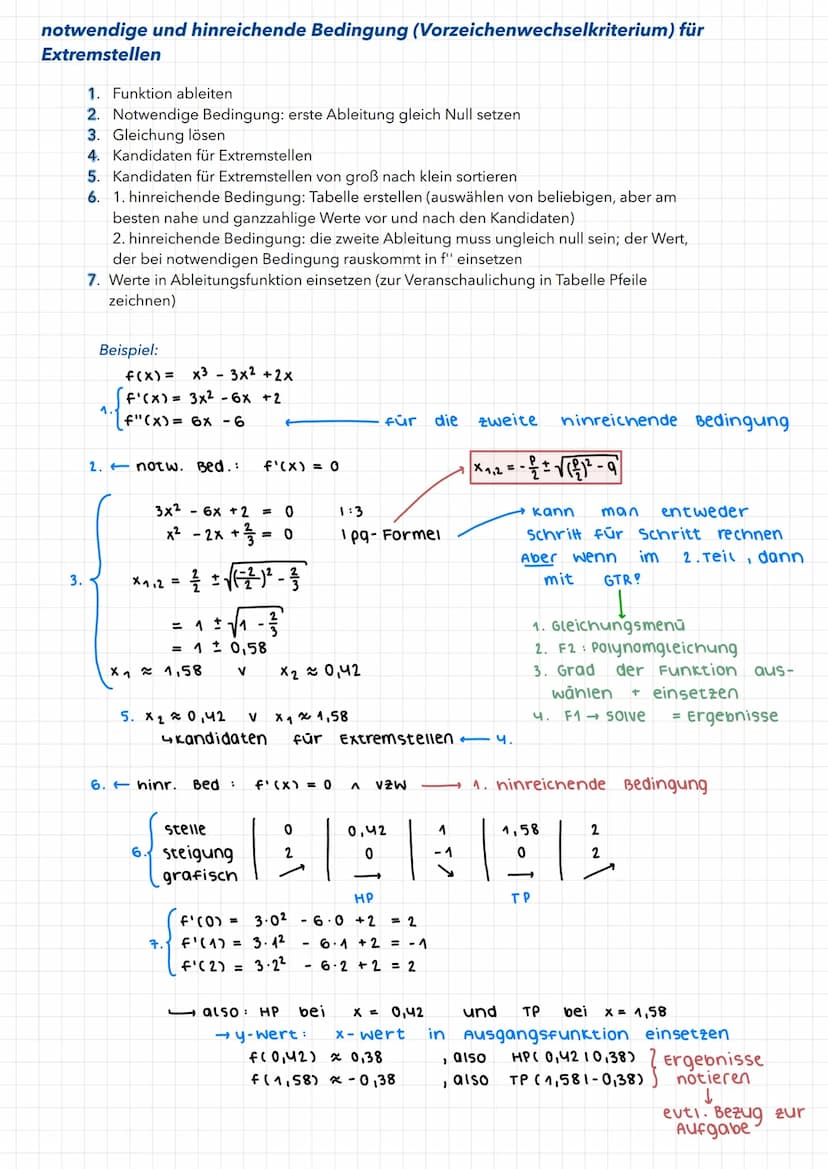 notwendige und hinreichende Bedingung (Vorzeichenwechselkriterium) für
Extremstellen
1. Funktion ableiten
2. Notwendige Bedingung: erste Ableitung gleich Null setzen
3. Gleichung lösen
4. Kandidaten für Extremstellen
5. Kandidaten für Extremstellen von groß nach klein sortieren
6. 1. hinreichende Bedingung: Tabelle erstellen (auswählen von beliebigen, aber am
besten nahe und ganzzahlige Werte vor und nach den Kandidaten)
2. hinreichende Bedingung: die zweite Ableitung muss ungleich null sein; der Wert,
der bei notwendigen Bedingung rauskommt in f'' einsetzen
7. Werte in Ableitungsfunktion einsetzen (zur Veranschaulichung in Tabelle Pfeile
zeichnen)
Beispiel:
f(x) = x³ - 3x² + 2x
1. { f'(x) = 3x² - 6x + 2
f''(x) = 6x - 6 ← für die zweite hinreichende Bedingung
2. ← notw. Bed.: f'(x) = 0
x₁,₂ = -p/2 ± √((p/2)² - q)
3. { 3x² - 6x + 2 = 0 | :3
x² - 2x + 2/3 = 0 | pq-Formel
x₁,₂ = 2/2 ± √((-2/2)² - 2/3)
= 1 ± √(1 - 2/3)
= 1 ± 0,58
x₁ ≈ 1,58 v x₂ ≈ 0,42
→ kann man entweder
Schritt für Schritt rechnen
Aber wenn im 2. Teil, dann
mit GTR?
↓
1. Gleichungsmenü
2. F2: Polynomgleichung
3. Grad der Funktion aus-
wählen + einsetzen
4. F1 → solve = Ergebnisse
5. x₂ ≈ 0,42 v x₁ ≈ 1,58
↳ Kandidaten für Extremstellen ← 4.
6. ← hinr. Bed: f'(x) = 0 ∧ VZW → 1. hinreichende Bedingung
6. { Stelle | 0 | 0,42 | 1 | 1,58 | 2
Steigung | 2 | 0 | -1 | 0 | 2
grafisch | ↗ | → | ↘ | → | ↗
HP TP
7. { f'(0) = 3·0² - 6·0 + 2 = 2
f'(1) = 3·1² - 6·1 + 2 = -1
f'(2) = 3·2² - 6·2 + 2 = 2
↳ also: HP bei x = 0,42 und TP bei x = 1,58
→ y-Wert: x-Wert in Ausgangsfunktion einsetzen
f(0,42) ≈ 0,38 , also HP(0,42|0,38) } Ergebnisse
f(1,58) ≈ -0,38 , also TP(1,58|-0,38) notieren
↓
evtl. Bezug zur
Aufgabe